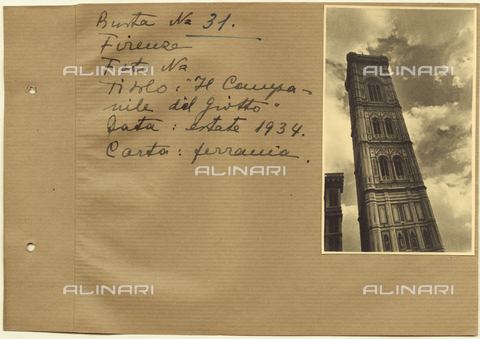 Busta No 31.
Firenze
Foto No
Titolo: "Il Campa-
nile del Giotto"
Data: estate 1934.
Carta: ferrania.
ALINARI
ALINARI
ALINARI
ALINARI
ALINARI